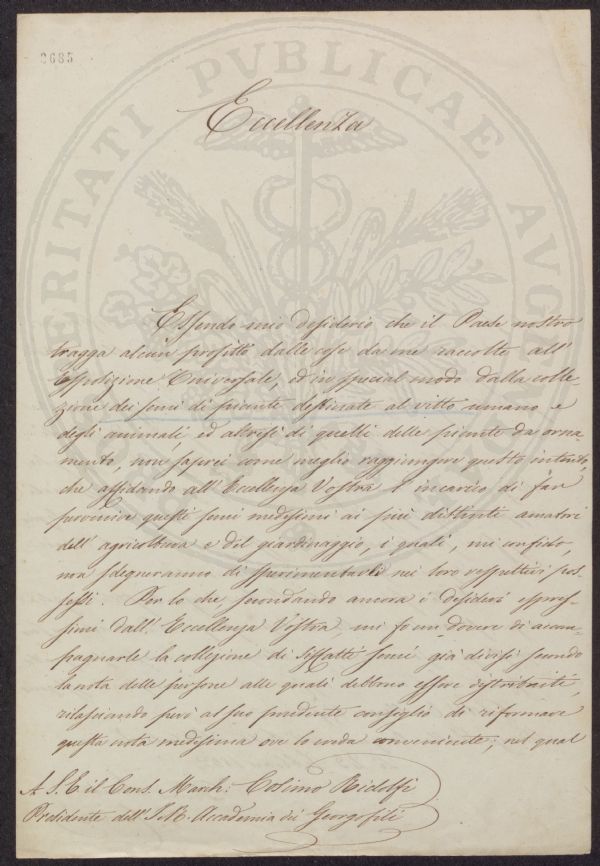 2685
Eccellenza
Essendo mio desiderio che il Paese nostro
tragga alcun profitto dalle cose da me raccolte all'
Esposizione Universale, ed in special modo dalla colle-
zione dei semi di piante destinate al vitto umano e
degli animali, ed altresì di quelli delle piante da orna-
mento, non saprei come meglio raggiungere questo intento,
che affidando all'Eccellenza Vostra l'incarico di far
pervenire questi semi medesimi ai più distinti amatori
dell'agricoltura e del giardinaggio, i quali, mi confido,
non sdegneranno di sperimentarli nei loro respettivi pos-
sessi. Per lo che, secondando ancora i desiderj espres-
simi dall'Eccellenza Vostra, mi fo un dovere di accom-
pagnarle la collezione di siffatti semi già divisi secondo
la nota delle persone alle quali debbono essere distribuite,
rilasciando però al suo prudente consiglio di riformare
questa nota medesima ove lo creda conveniente; nel qual
A S. E. il Cons. March: Cosimo Ridolfi
Presidente dell'I. R. Accademia dei Georgofili
PROSPERITATI PVBLICAE AVGENDAE